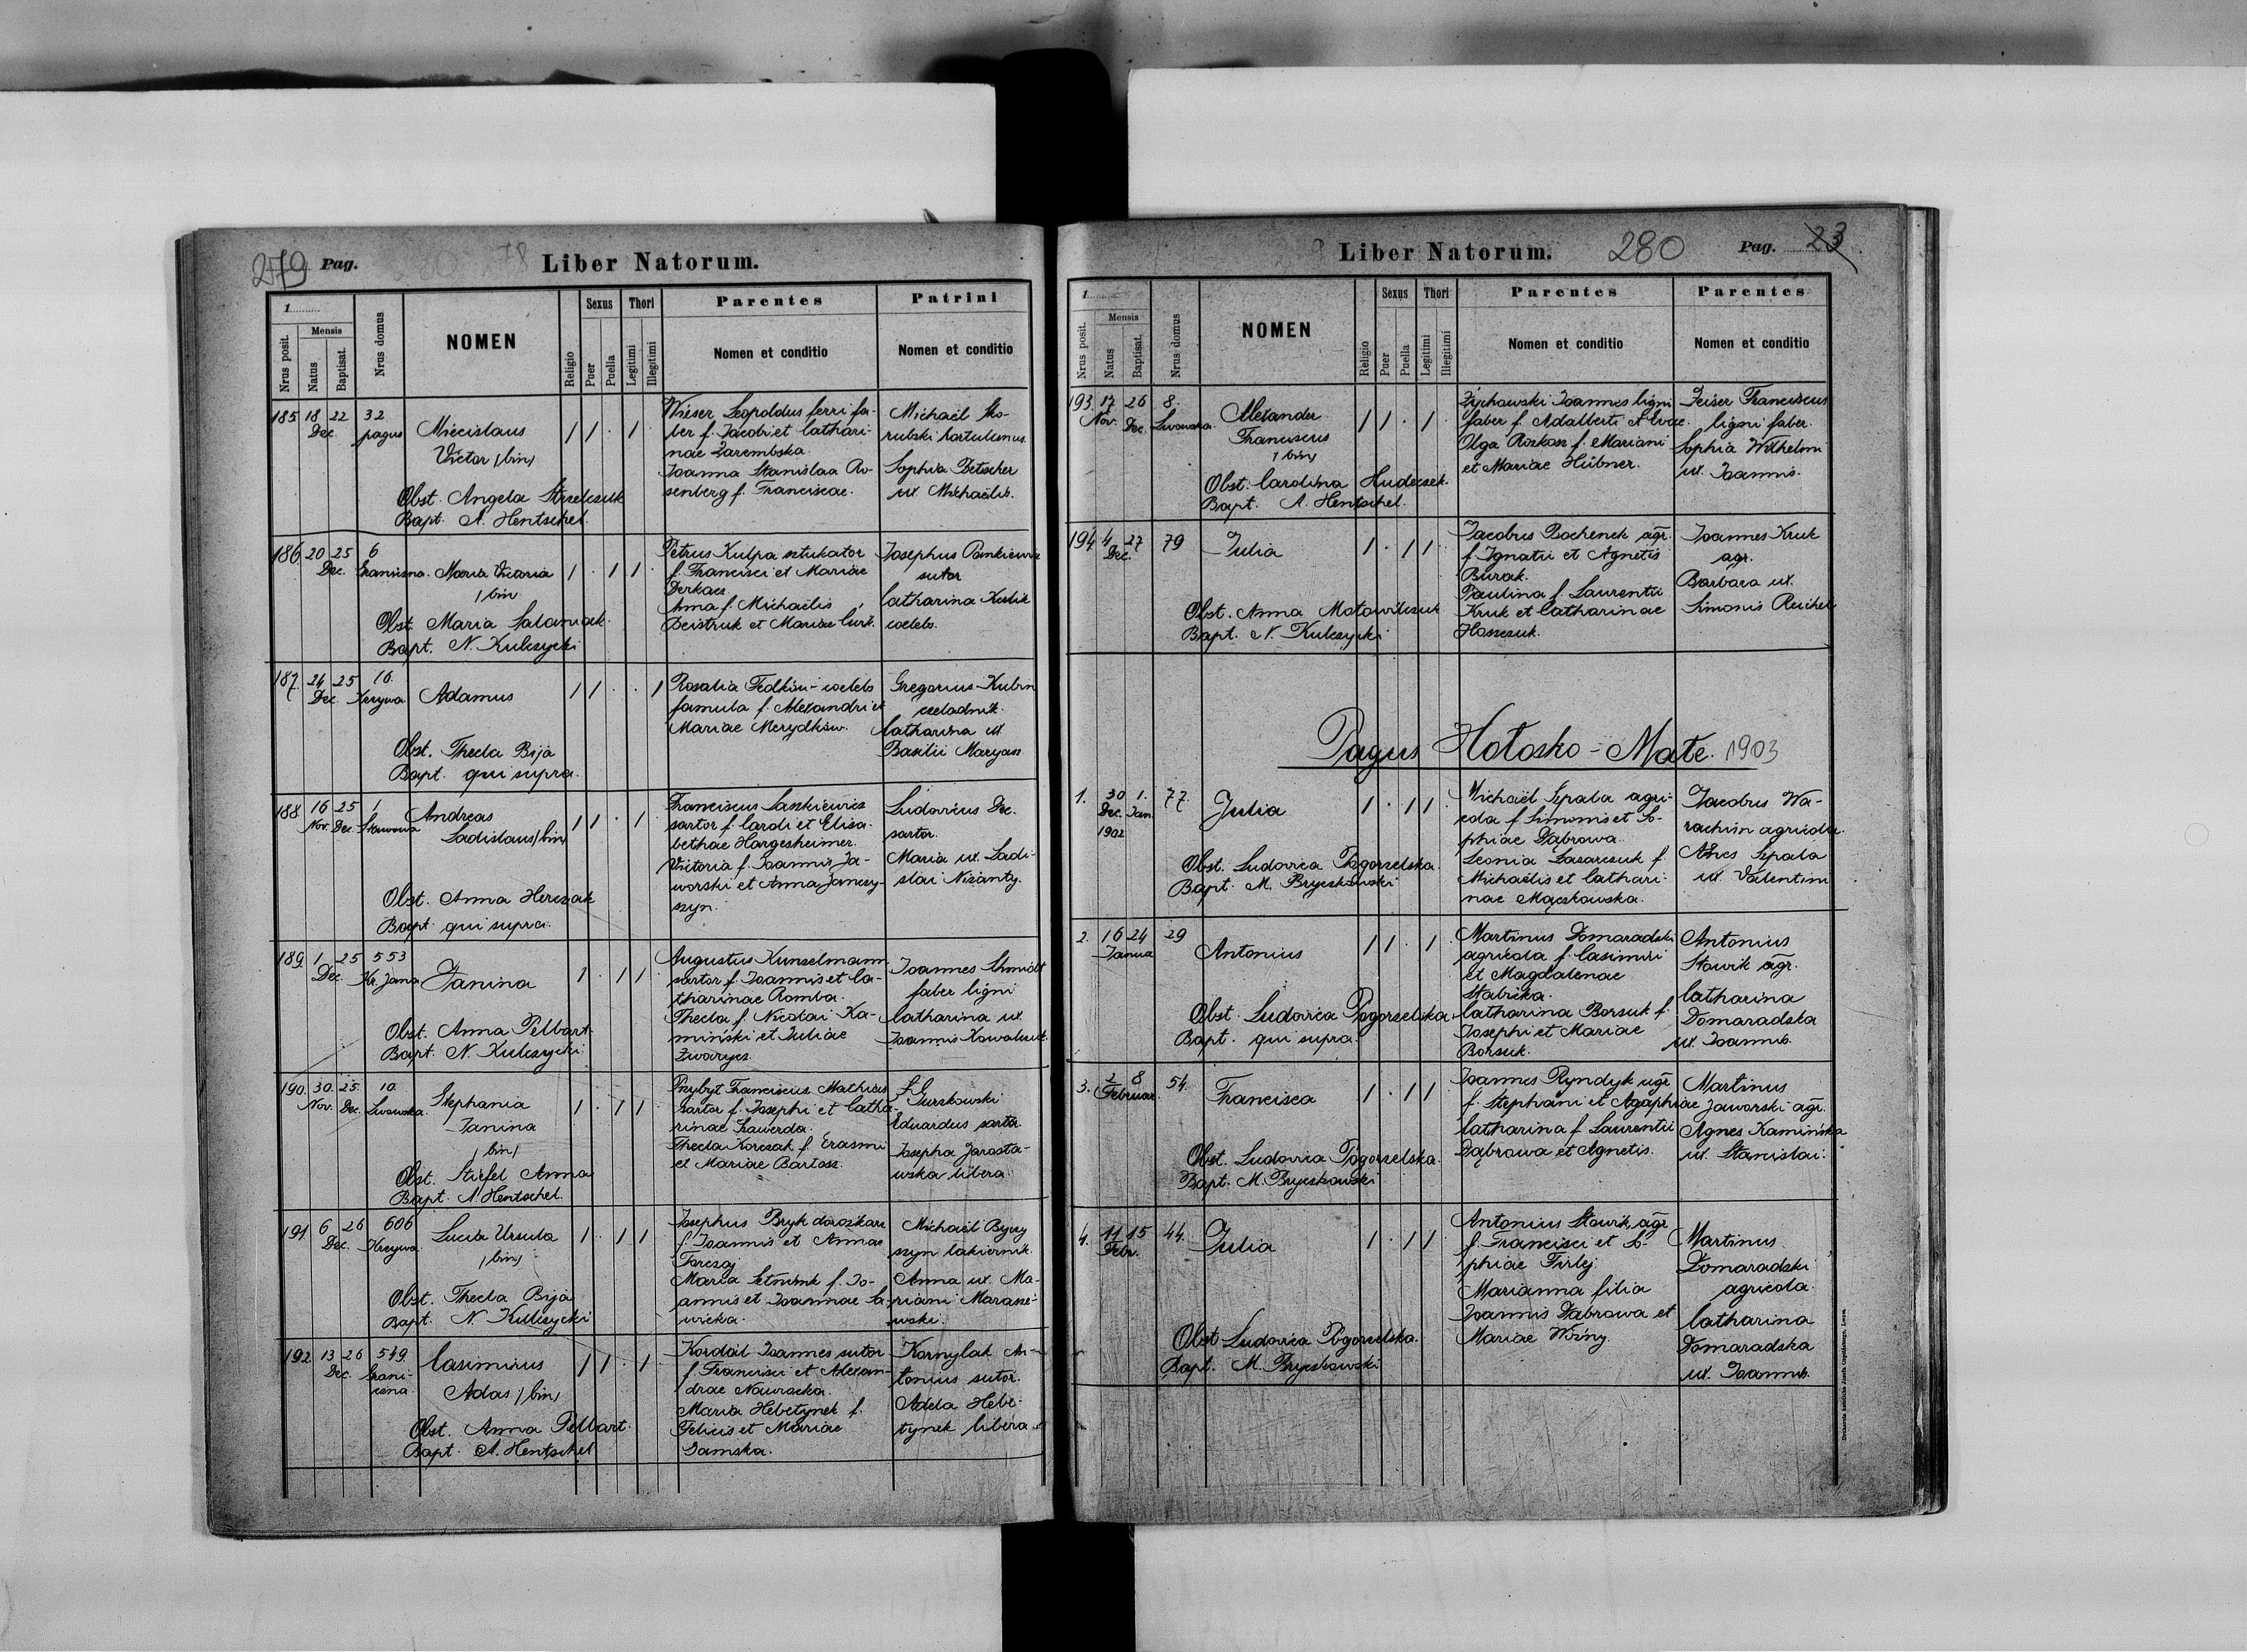 279 Pag. Liber Natorum.
1
Nrus posit.
Mensis
Natus
Baptisat.
Nrus domus
NOMEN
Religio
Sexus
Puer
Puella
Thori
Legitimi
Illegitimi
Parentes
Nomen et conditio
Patrini
Nomen et conditio
185 18 22 32
Dec. pagus
Miecislaus
Victor /bin/
1 1 . 1
Obst. Angela Strzelczuk
Bapt. A. Hentschel.
Wieser Leopoldus ferri fa-
ber f. Jacobi et Cathari-
nae Zarembska.
Joanna Stanislaa Ro-
senberg f. Franciscae.
Michaël Sko-
rubski hortulanus.
Sophia Betscher
ux. Michaëlis.
186 20 25 6
Dec. Graniczna.
Maria Victoria
/bin
1 . 1 1 .
Obst. Maria Salamiak.
Bapt. N. Kulczycki
Petrus Kulpa sztukator
f. Francisci et Mariae
Derkacz
Anna f. Michaëlis
Deistruk et Mariae
Josephus Pankiewicz
sutor
Catharina
coelebs.
187. 24 25 16.
Dec. Krzywa
Adamus
1 1 . . 1
Obst. Thecla Bija
Bapt. qui supra.
Rosalia Fedków - coelebs
famula f. Alexandri et
Mariae Merydków.
Gregorius Kubin
czeladnik.
Catharina ux
Basilii Maryan
188 16 25 1
Nov. Dec.
Andreas
Ladislaus /bin/
1 1 . 1
Obst. Anna Herczak
Bapt. qui supra.
Franciscus Laszkiewicz
sartor f. Caroli et Elisa-
bethae Hargesheimer.
Victoria f. Joannis Ja-
worski et Anna Janczy-
szyn.
Ludovicus Dec.
sartor.
Maria ux. Ladi-
slai Niżanty.
189. 1 25 553
Dec. Kr. Jana
Janina
1 . 1 1
Obst. Anna Pelbart
Bapt. N. Kulczycki
Augustus Kunzelmann
sartor f. Joannis et Ca-
tharinae Romba.
Thecla f. Nicolai Ka-
miński et Juliae
Zwarycz.
Joannes Schmidt
faber ligni
Catharina ux
Joannis Kowalczuk.
190. 30. 25. 10.
Nov. Dec. Lwowska.
Stephania
Janina
/bin/
1 . 1 1
Obst. Stiefel Anna
Bapt. A. Hentschel.
Przybył Franciscus Mathias
sartor f. Josephi et Catha-
rinae
Thecla Korczak f. Erasmi
et Mariae Bartosz.
Gurszkowski
Eduardus sartor.
Josepha Jarosła-
wska libera.
191. 6 26 606
Dec. Krzywa.
Lucia Ursula
/bin/
1 . 1 1
Obst. Thecla Bija
Bapt. N. Kulczycki
Josephus Bryk dorożkarz
f. Joannis et Annae
Farczaj
Maria f. Jo-
annis et Joannae Sa-
wicka.
Michaël Byczy
szyn lakiernik.
Anna ux. Ma-
riani Marasze-
wski.
192. 13 26 549.
Dec. Grani-
czna
Casimirus
Adas /bin/
1 1 . 1
Obst. Anna Pelbart.
Bapt. A. Hentschel
Kordal Joannes sutor
f. Francisci et Alexan-
drae Nawracka.
Maria Hebetynek f.
Felicis et Mariae
Zamska.
Kornylak An-
tonius sutor.
Adela Hebe-
tynek libera.
Liber Natorum. 280 Pag. 23
1
Nrus posit.
Mensis
Natus
Baptisat.
Nrus domus
NOMEN
Religio
Sexus
Puer
Puella
Thori
Legitimi
Illegitimi
Parentes
Nomen et conditio
Parentes
Nomen et conditio
193. 17 26 8.
Nov. Dec. Lwowska.
Alexander
Franciscus
/bin/
1 1 . 1
Obst. Carolina Hudeczek.
Bapt. A. Hentschel.
Zychowski Joannes ligni
faber f. Adalberti et Evae.
Olga Roszkosz f. Mariani
et Mariae Hübner.
Zeiser Franciscus
ligni faber.
Sophia Wilhelm
ux. Joannis.
194 4 27 79
Dec.
Julia
1 . 1 1
Obst. Anna Matawilczuk
Bapt. N. Kulczycki
Jacobus Bochenek agr.
f. Ignatii et Agnetis
Burak.
Paulina f. Laurentii
Kruk et Catharinae
Hosczuk.
Joannes Kruk
agr.
Barbara ux.
Simonis Reichel
Pagus Hołosko-Małe. 1903
1. 30 1. 77.
Dec. Jan.
1902
Julia
1 . 1 1
Obst. Ludovica Pogorzelska.
Bapt. M. Bryczkowski
Michaël Szpala agri-
cola f. Simonis et So-
phiae Dąbrowa.
Leonia Lazarczuk f.
Michaëlis et Cathari-
nae Mączkowska.
Jacobus Wa-
rachim agricola.
Agnes Szpala
ux. Valentini
2. 16 24 29
Janua
Antonius
1 1 . 1
Obst. Ludovica Pogorzelska.
Bapt. qui supra.
Martinus Domaradzki
agricola f. Casimiri
et Magdalenae
Słabicka.
Catharina Borsuk f.
Josephi et Mariae
Borsuk.
Antonius
Słowik agr.
Catharina
Domaradzka
ux. Joannis.
3. 2 8 54.
Februar.
Francisca
1 . 1 1
Obst. Ludovica Pogorzelska.
Bapt. M. Bryczkowski
Joannes Ryndyk agr
f. Stephani et Agaphiae
Catharina f. Laurentii
Dąbrowa et Agnetis.
Martinus
Jaworski agr.
Agnes Kamińska
ux. Stanislai.
4. 11 15 44.
Febr.
Julia
1 . 1 1
Obst Ludovica Pogorzelska.
Bapt. M. Bryczkowski
Antonius Słowik, agr
f. Francisci et So-
phiae Firlej.
Marianna filia
Joannis Dąbrowa et
Mariae Woźny.
Martinus
Domaradzki
agricola.
Catharina
Domaradzka
ux. Joannis.